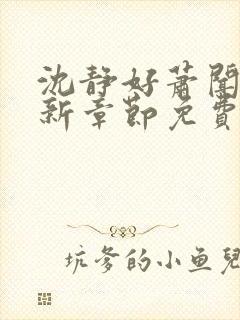 沈静好蕭闓
新章節免費
坑爹的小鱼兒